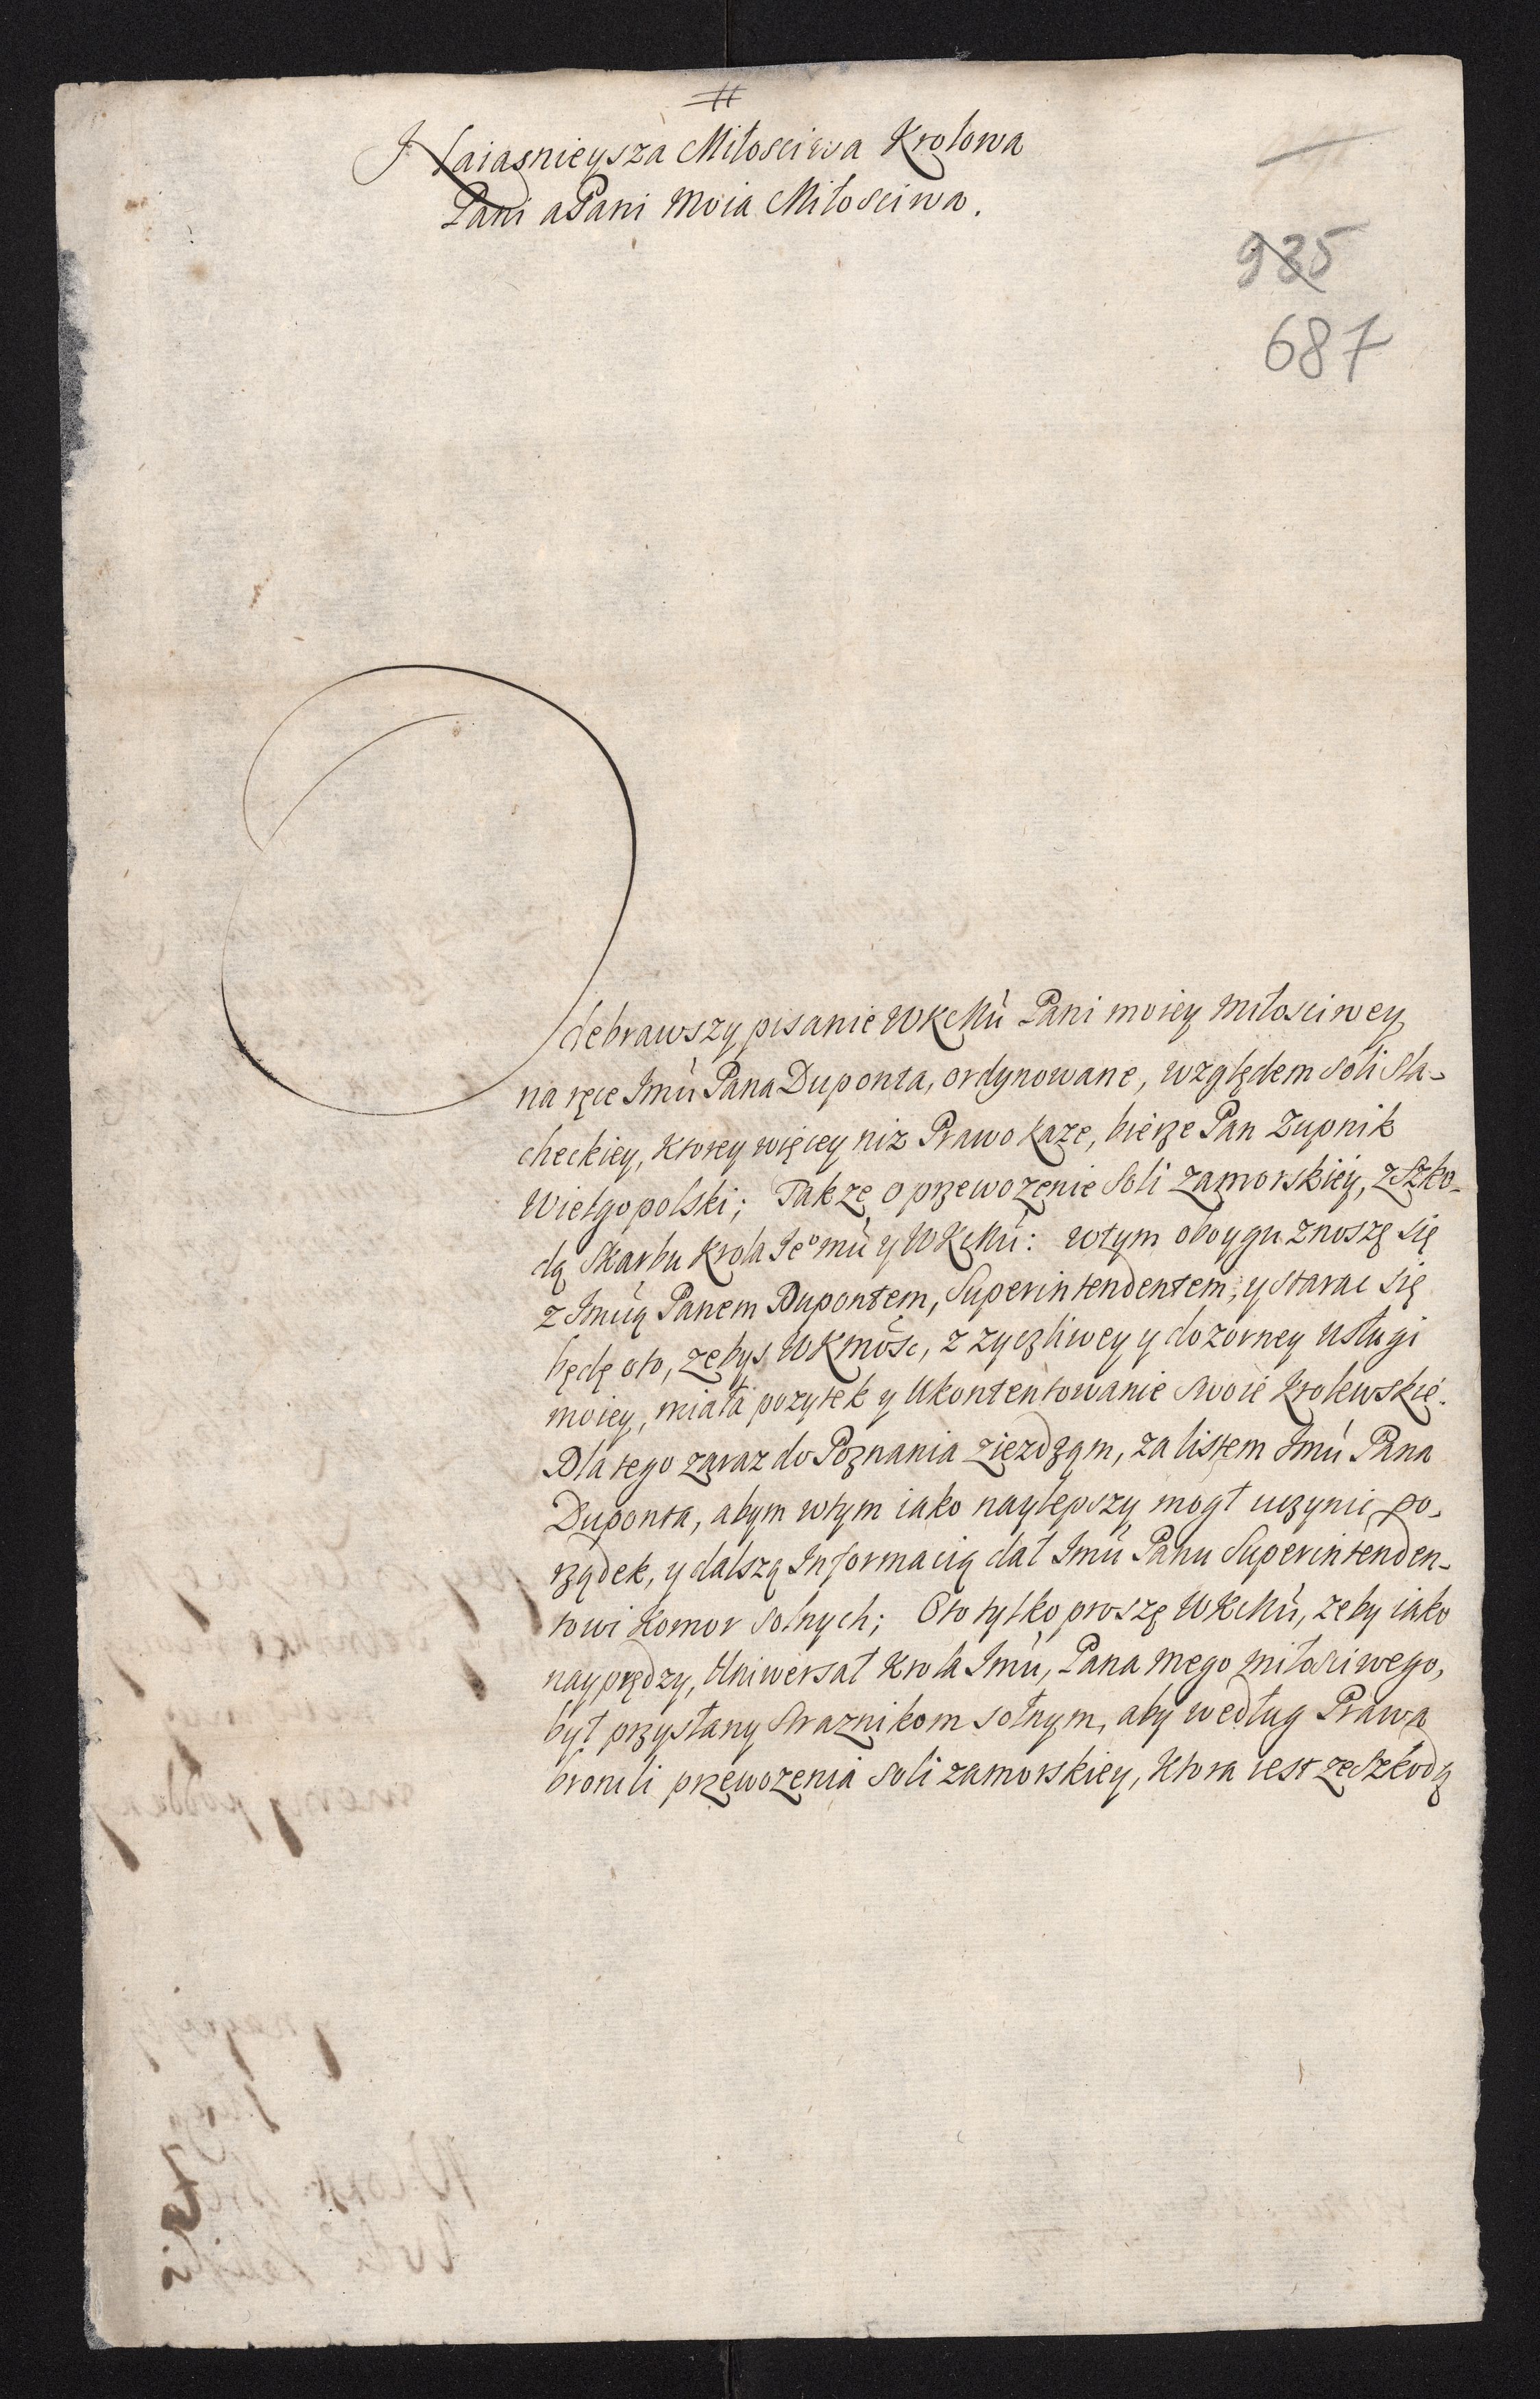 #
Naiasnieysza Miłosciwa Krolowa
Pani a Pani Moia Miłosciwa.
935
687
Odebrawszy pisanie WKMci Pani moiey Miłosciwey
na ręce Jmci Pana Duponta, ordynowane, względem Soli Sla-
checkiey, Ktorey więcey niz Prawo kaze, bierze Pan Zupnik
Wielgopolski; Takze o przewozenie Soli zamorskiey, z Szko-
dą Skarbu Krola Jeo mci y WKMci: w tym oboygu znoszę się
z Jmcią Panem Dupontem, Superintendentem, y starac się
będę o to, zebys WKmośc, z zyczliwey y dozorney usługi
moiey, miała pozytek y Ukontentowanie Swoie Krolewskie.
Dla tego zaraz do Poznania ziezdzam, za listem Jmci Pana
Duponta, abym w tym iako naylepszy mogł uczynic po-
rządek, y dalszą Informacią dał Jmci Panu Superintenden-
towi Komor Solnych; O to tylko proszę WKMci, zeby iako
nayprędzy, Uniwersał Krola Jmci, Pana mego miłosciwego,
był przysłany Straznikom solnym, aby według Prawa
bronili przewozenia Soli zamorskiey, Ktora iest ze Szkodą